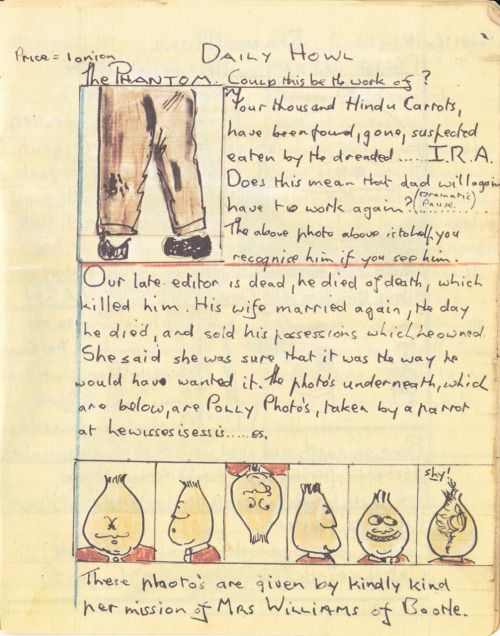 Price = 1 onion
DAILY HOWL
The PHANTOM. Could this be the work of?
Four thousand Hindu Carrots,
have been found, gone, suspected
eaten by the dreaded ...... I.R.A.
Does this mean that dad will again
have to work again? (Dramatic Pause..........)
The above photo above is to help you
recognise him if you see him.
Our late editor is dead, he died of death, which
killed him. His wife married again, the day
he died, and sold his possessions which he owned
She said she was sure that it was the way he
would have wanted it. The photo's underneath, which
are below, are POLLY PHOTO'S, taken by a parrot
at Lewisseisessis.....es.
Shy!
These photo's are given by kindly kind
permission of MRS WILLIAMS of Bootle.